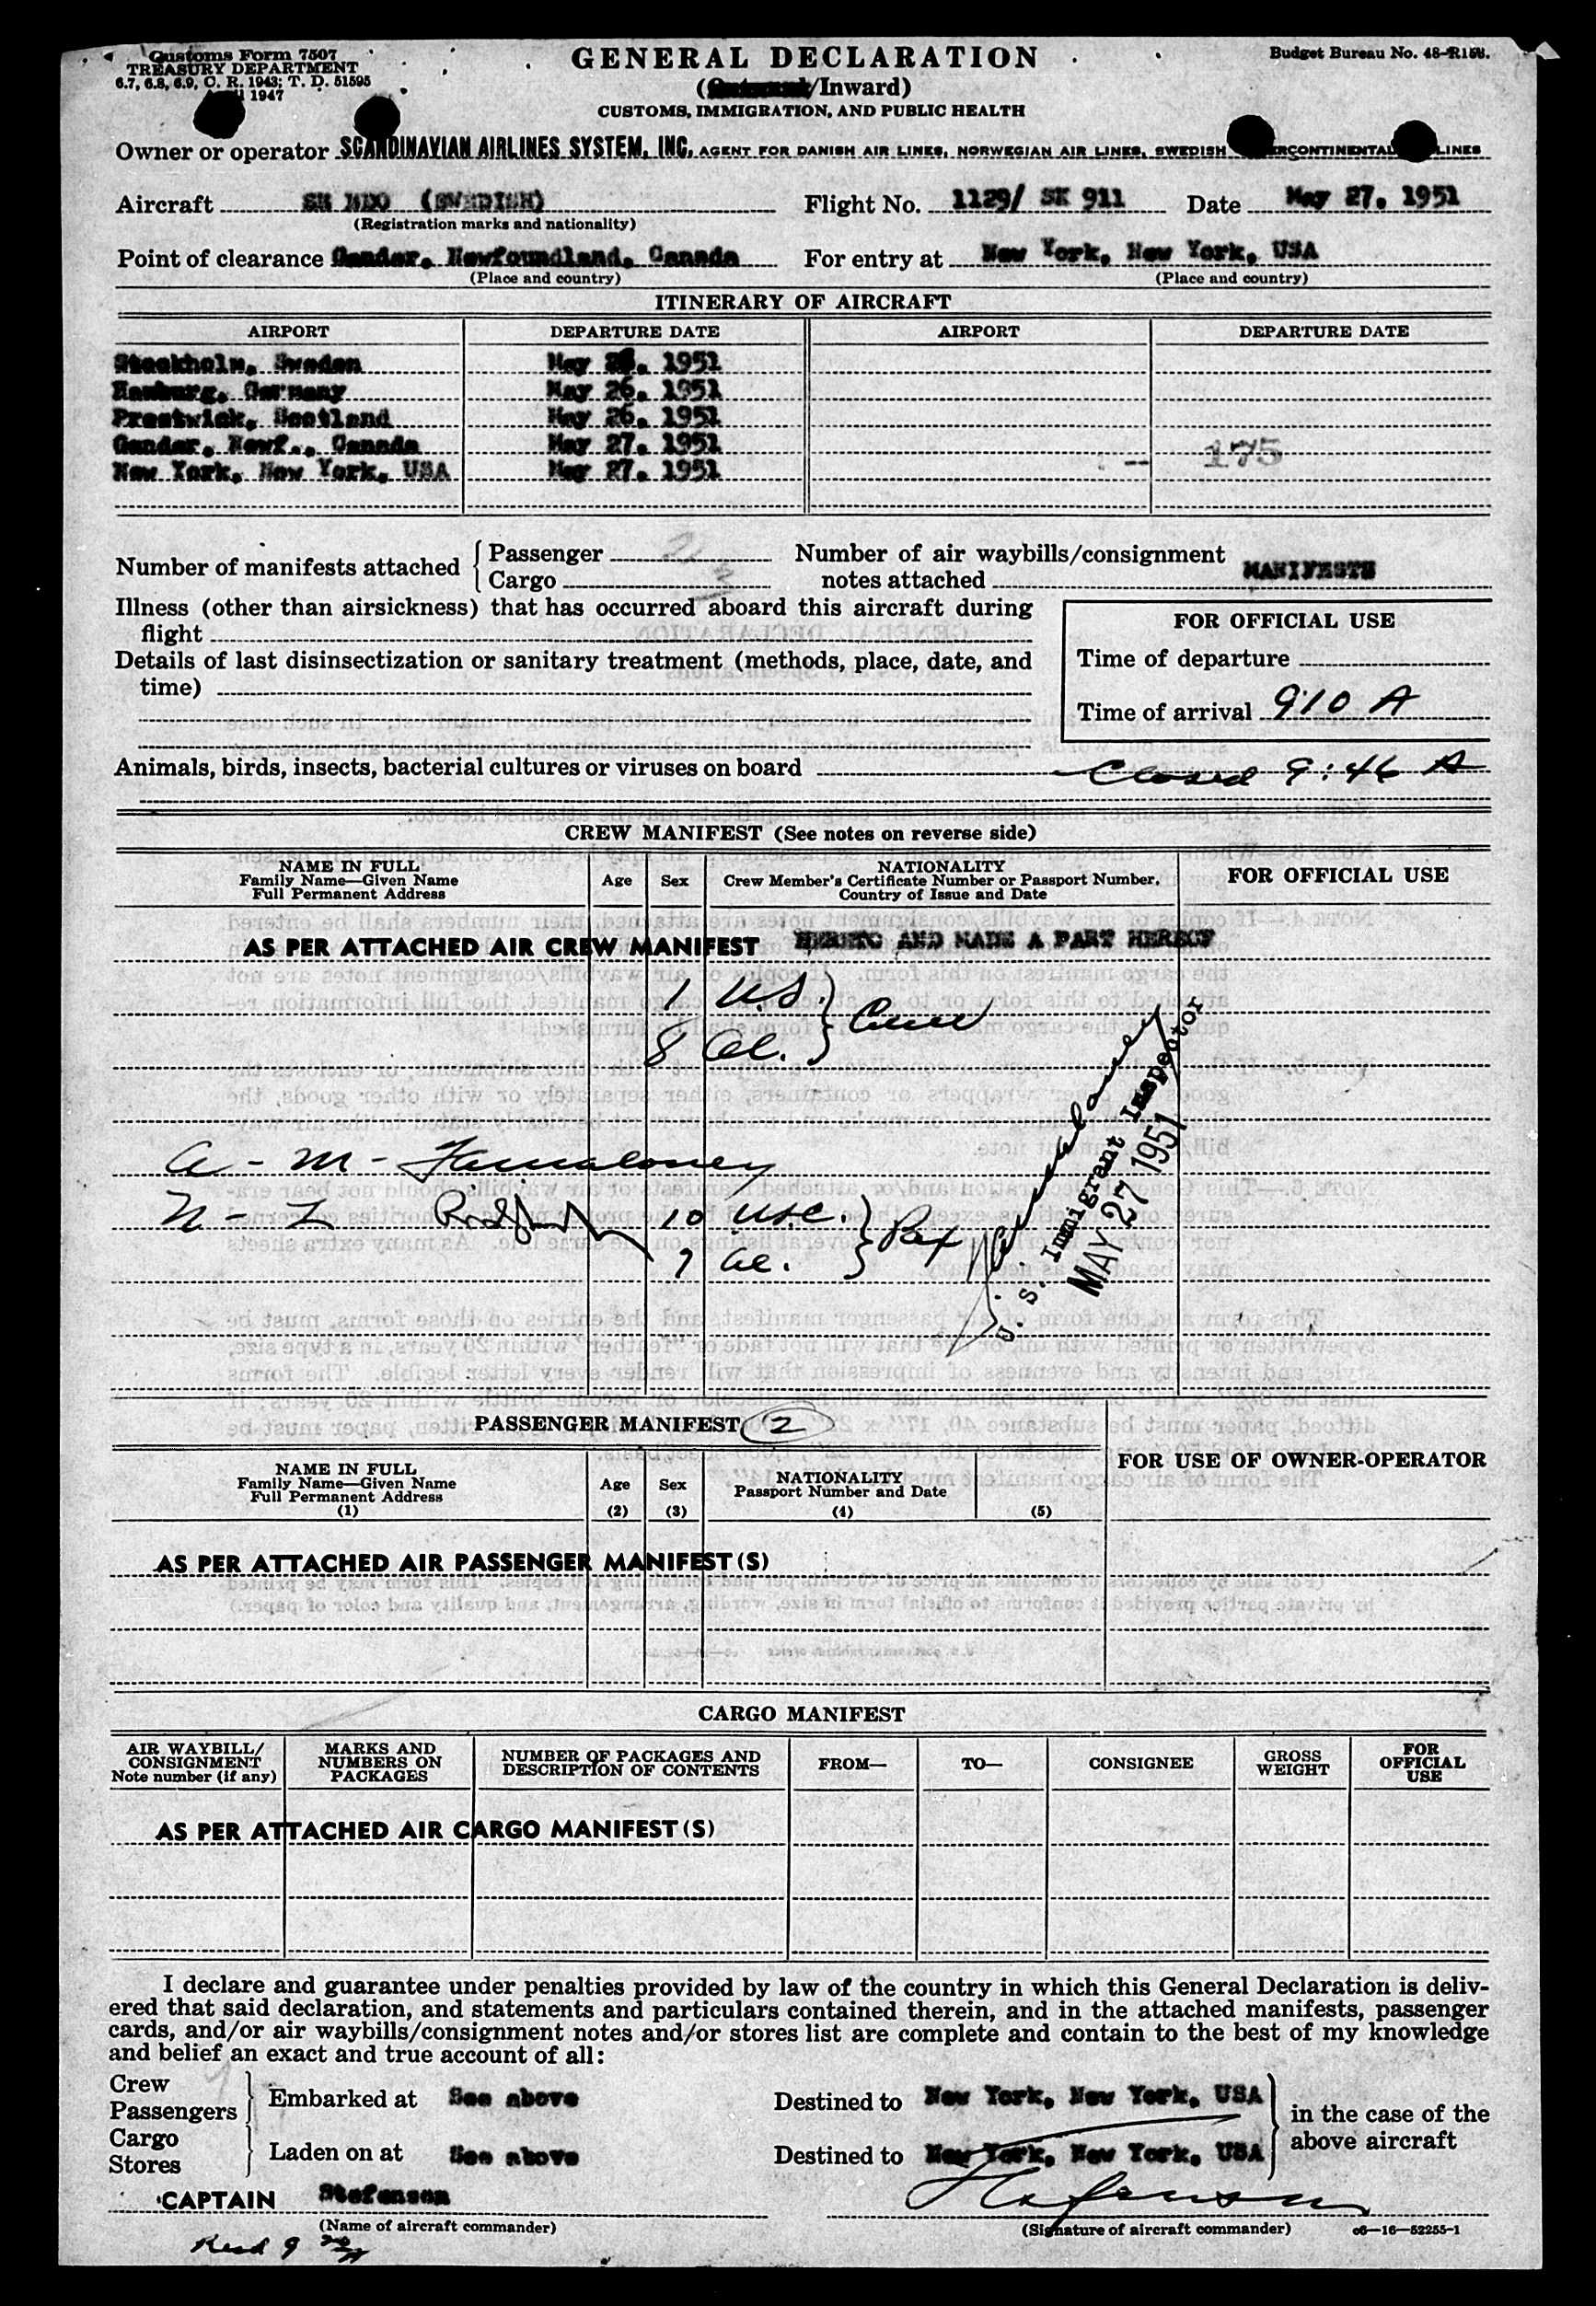 Customs Form 7507
TREASURY DEPARTMENT
6.7, 6.8, 6.9, C. R. 1943; T. D. 51595
1947
GENERAL DECLARATION
(/Inward)
CUSTOMS, IMMIGRATION, AND PUBLIC HEALTH
Budget Bureau No. 48-R158.
Owner or operator SCANDINAVIAN AIRLINES SYSTEM, INC. AGENT FOR DANISH AIR LINES, NORWEGIAN AIR LINES, SWEDISH LINES
Aircraft SE (SWEDISH) Flight No. 1129/ SK 911 Date May 27. 1951
(Registration marks and nationality)
Point of clearance Gander, Newfoundland, Canada For entry at New York, New York, USA
(Place and country) (Place and country)
ITINERARY OF AIRCRAFT
AIRPORT DEPARTURE DATE AIRPORT DEPARTURE DATE
Stockholm, Sweden May 26. 1951
Hamburg, Germany May 26. 1951
Prestwick, Scotland May 26. 1951
Gander, Newf., Canada May 27. 1951
New York, New York, USA May 27. 1951 -- 175
Number of manifests attached { Passenger 2 Number of air waybills/consignment
Cargo 3 notes attached MANIFESTS
Illness (other than airsickness) that has occurred aboard this aircraft during
flight
Details of last disinsectization or sanitary treatment (methods, place, date, and
time)
FOR OFFICIAL USE
Time of departure
Time of arrival 910 A
Animals, birds, insects, bacterial cultures or viruses on board Closed 9:46 A
CREW MANIFEST (See notes on reverse side)
NAME IN FULL
Family Name—Given Name
Full Permanent Address
Age Sex
NATIONALITY
Crew Member's Certificate Number or Passport Number,
Country of Issue and Date
FOR OFFICIAL USE
AS PER ATTACHED AIR CREW MANIFEST HERETO AND MADE A PART HEREOF
1 U.S. } Crew
8 Al.
A - M -
N - L 10 USC. } Pax
7 Al.
U. S. Immigrant Inspector
MAY 27 1951
PASSENGER MANIFEST 2
NAME IN FULL
Family Name—Given Name
Full Permanent Address
(1)
Age
(2)
Sex
(3)
NATIONALITY
Passport Number and Date
(4) (5)
FOR USE OF OWNER-OPERATOR
AS PER ATTACHED AIR PASSENGER MANIFEST(S)
CARGO MANIFEST
AIR WAYBILL/
CONSIGNMENT
Note number (if any)
MARKS AND
NUMBERS ON
PACKAGES
NUMBER OF PACKAGES AND
DESCRIPTION OF CONTENTS
FROM— TO— CONSIGNEE
GROSS
WEIGHT
FOR
OFFICIAL
USE
AS PER ATTACHED AIR CARGO MANIFEST(S)
I declare and guarantee under penalties provided by law of the country in which this General Declaration is deliv-
ered that said declaration, and statements and particulars contained therein, and in the attached manifests, passenger
cards, and/or air waybills/consignment notes and/or stores list are complete and contain to the best of my knowledge
and belief an exact and true account of all:
Crew
Passengers } Embarked at See above Destined to New York, New York, USA
Cargo
Stores } Laden on at See above Destined to New York, New York, USA
} in the case of the
above aircraft
CAPTAIN Stefenson
(Name of aircraft commander) (Signature of aircraft commander) c6—16—52255-1
Recd 9